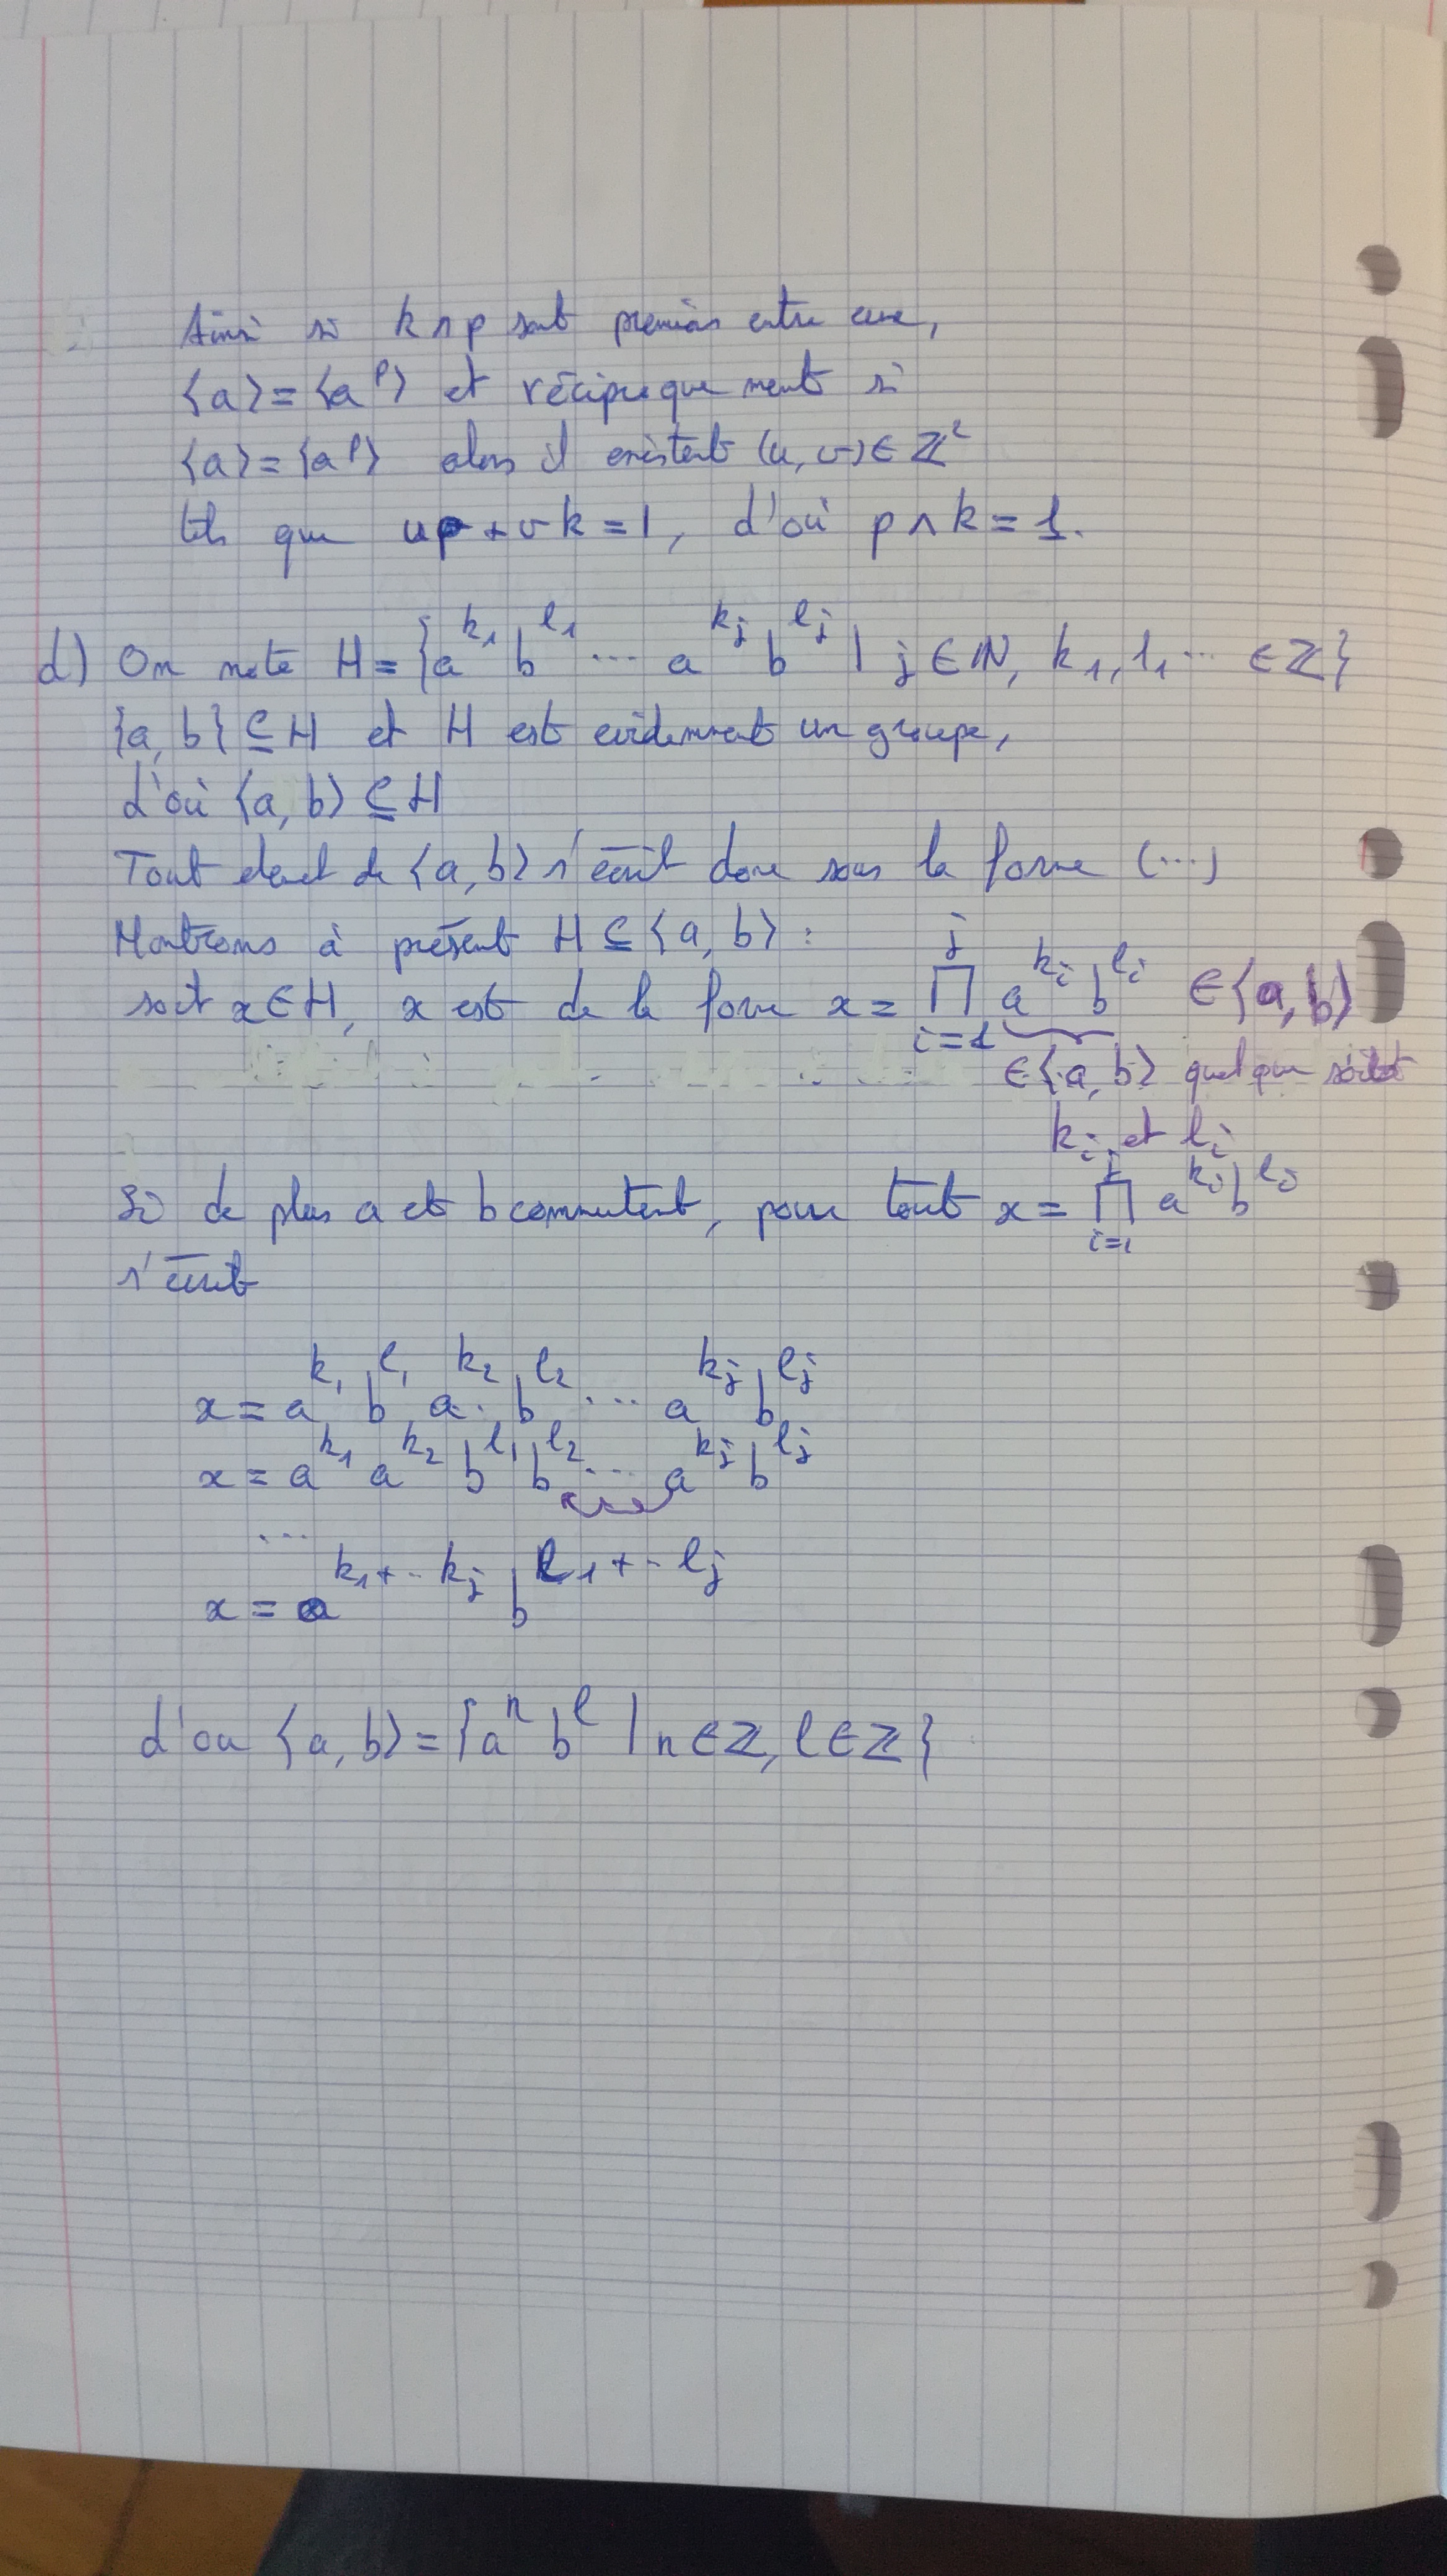 Ainsi si k ∧ p sont premiers entre eux,
⟨a⟩ = ⟨a^p⟩ et réciproquement si
⟨a⟩ = ⟨a^p⟩ alors il existent (u, v) ∈ ℤ²
tels que up + vk = 1, d'où p ∧ k = 1.
d) On note H = {a^{k_1} b^{l_1} ... a^{k_j} b^{l_j} | j ∈ ℕ, k_1, l_1 ... ∈ ℤ}
{a, b} ⊆ H et H est evidemment un groupe,
d'où ⟨a, b⟩ ⊆ H
Tout elemt de ⟨a, b⟩ s'écrit donc sous la forme (...)
Montrons à présent H ⊆ ⟨a, b⟩ :
soit x ∈ H, x est de la forme x = ∏_{i=1}^{j} a^{k_i} b^{l_i} ∈ ⟨a, b⟩
∈ ⟨a, b⟩ quelque soit
k_i et l_i
Si de plus a et b commutent, pour tout x = ∏_{i=1}^{j} a^{k_j} b^{l_j}
s'écrit
x = a^{k_1} b^{l_1} a^{k_2} b^{l_2} ... a^{k_j} b^{l_j}
x = a^{k_1} a^{k_2} b^{l_1} b^{l_2} ... a^{k_j} b^{l_j}
...
x = a^{k_1 + -- k_j} b^{l_1 + -- l_j}
d'ou ⟨a, b⟩ = {a^n b^l | n ∈ ℤ, l ∈ ℤ}